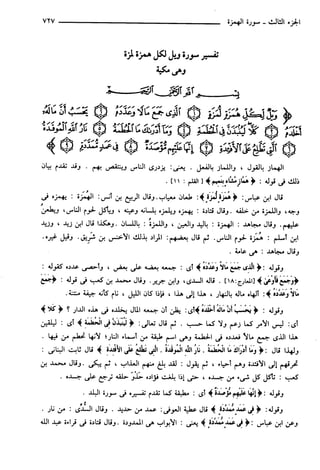 الجزء الثالث - سورة الهمزة ٧٢٧
تفسير سورة ويل لكل همزة لمزة
وهى مكية
﷽
﴿ وَيْلٌ لِّكُلِّ هُمَزَةٍ لُّمَزَةٍ ① الَّذِي جَمَعَ مَالًا وَعَدَّدَهُ ② يَحْسَبُ أَنَّ مَالَهُ
أَخْلَدَهُ ③ كَلَّا لَيُنبَذَنَّ فِي الْحُطَمَةِ ④ وَمَا أَدْرَاكَ مَا الْحُطَمَةُ ⑤ نَارُ اللَّهِ الْمُوقَدَةُ
⑥ الَّتِي تَطَّلِعُ عَلَى الْأَفْئِدَةِ ⑦ إِنَّهَا عَلَيْهِم مُّؤْصَدَةٌ ⑧ فِي عَمَدٍ مُّمَدَّدَةٍ ⑨ ﴾
الهماز بالقول ، واللماز بالفعل . يعنى: يزدرى الناس وينتقص بهم . وقد تقدم بيان
ذلك فى قوله : ﴿ هَمَّازٍ مَّشَّاءٍ بِنَمِيمٍ ﴾ [ القلم : ١١ ] .
قال ابن عباس: ﴿ هُمَزَةٍ لُّمَزَةٍ ﴾ : طعان معياب. وقال الربيع بن أنس: الهُمَزة : يهمزه فى
وجه، واللمزة من خلفه . وقال قتادة : يهمزه ويلمزه بلسانه وعينه ، ويأكل لحوم الناس، ويطعن
عليهم. وقال مجاهد : الهمزة : باليد والعين ، واللمزةُ : باللسان . وهكذا قال ابن زيد ، وزيد
ابن أسلم : هُمَزة لحوم الناس. ثم قال بعضهم: المراد بذلك الأخنس بن شريق. وقيل غيره.
وقال مجاهد: هى عامة .
وقوله : ﴿ الَّذِي جَمَعَ مَالًا وَعَدَّدَهُ ﴾ أى : جمعه بعضه على بعض ، وأحصى عدده كقوله :
﴿ وَجَمَعَ فَأَوْعَىٰ ﴾ [المعارج:١٨] . قاله السدى، وابن جرير. وقال محمد بن كعب فى قوله : ﴿ جَمَعَ
مَالًا وَعَدَّدَهُ ﴾ : ألهاه ماله بالنهار ، هذا إلى هذا ، فإذا كان الليل ، نام كأنه جيفة منتنة.
وقوله : ﴿ يَحْسَبُ أَنَّ مَالَهُ أَخْلَدَهُ ﴾ أى: يظن أن جمعه المال يخلده فى هذه الدار ؟ ﴿ كَلَّا ﴾
أى: ليس الأمر كما زعم ولا كما حسب . ثم قال تعالى: ﴿ لَيُنبَذَنَّ فِي الْحُطَمَةِ ﴾ أى : ليلقين
هذا الذى جمع مالاً فعدده فى الحطمة وهى اسم طبقة من أسماء النار؛ لأنها تحطم من فيها .
ولهذا قال : ﴿ وَمَا أَدْرَاكَ مَا الْحُطَمَةُ . نَارُ اللَّهِ الْمُوقَدَةُ . الَّتِي تَطَّلِعُ عَلَى الْأَفْئِدَةِ ﴾ قال ثابت البنانى :
تحرقهم إلى الأفئدة وهم أحياء ، ثم يقول : لقد بلغ منهم العذاب ، ثم يبكى . وقال محمد بن
كعب : تأكل كل شىء من جسده ، حتى إذا بلغت فؤاده حَذْوَ حلقه ترجع على جسده .
وقوله : ﴿ إِنَّهَا عَلَيْهِم مُّؤْصَدَةٌ ﴾ أى : مطبقة كما تقدم تفسيره فى سورة البلد .
وقوله: ﴿ فِي عَمَدٍ مُّمَدَّدَةٍ ﴾ قال عطية العوفى: عمد من حديد . وقال السدى : من نار .
وعن ابن عباس : ﴿ فِي عَمَدٍ مُّمَدَّدَةٍ ﴾ يعنى : الأبواب هى الممدودة . وقال قتادة فى قراءة عبد الله